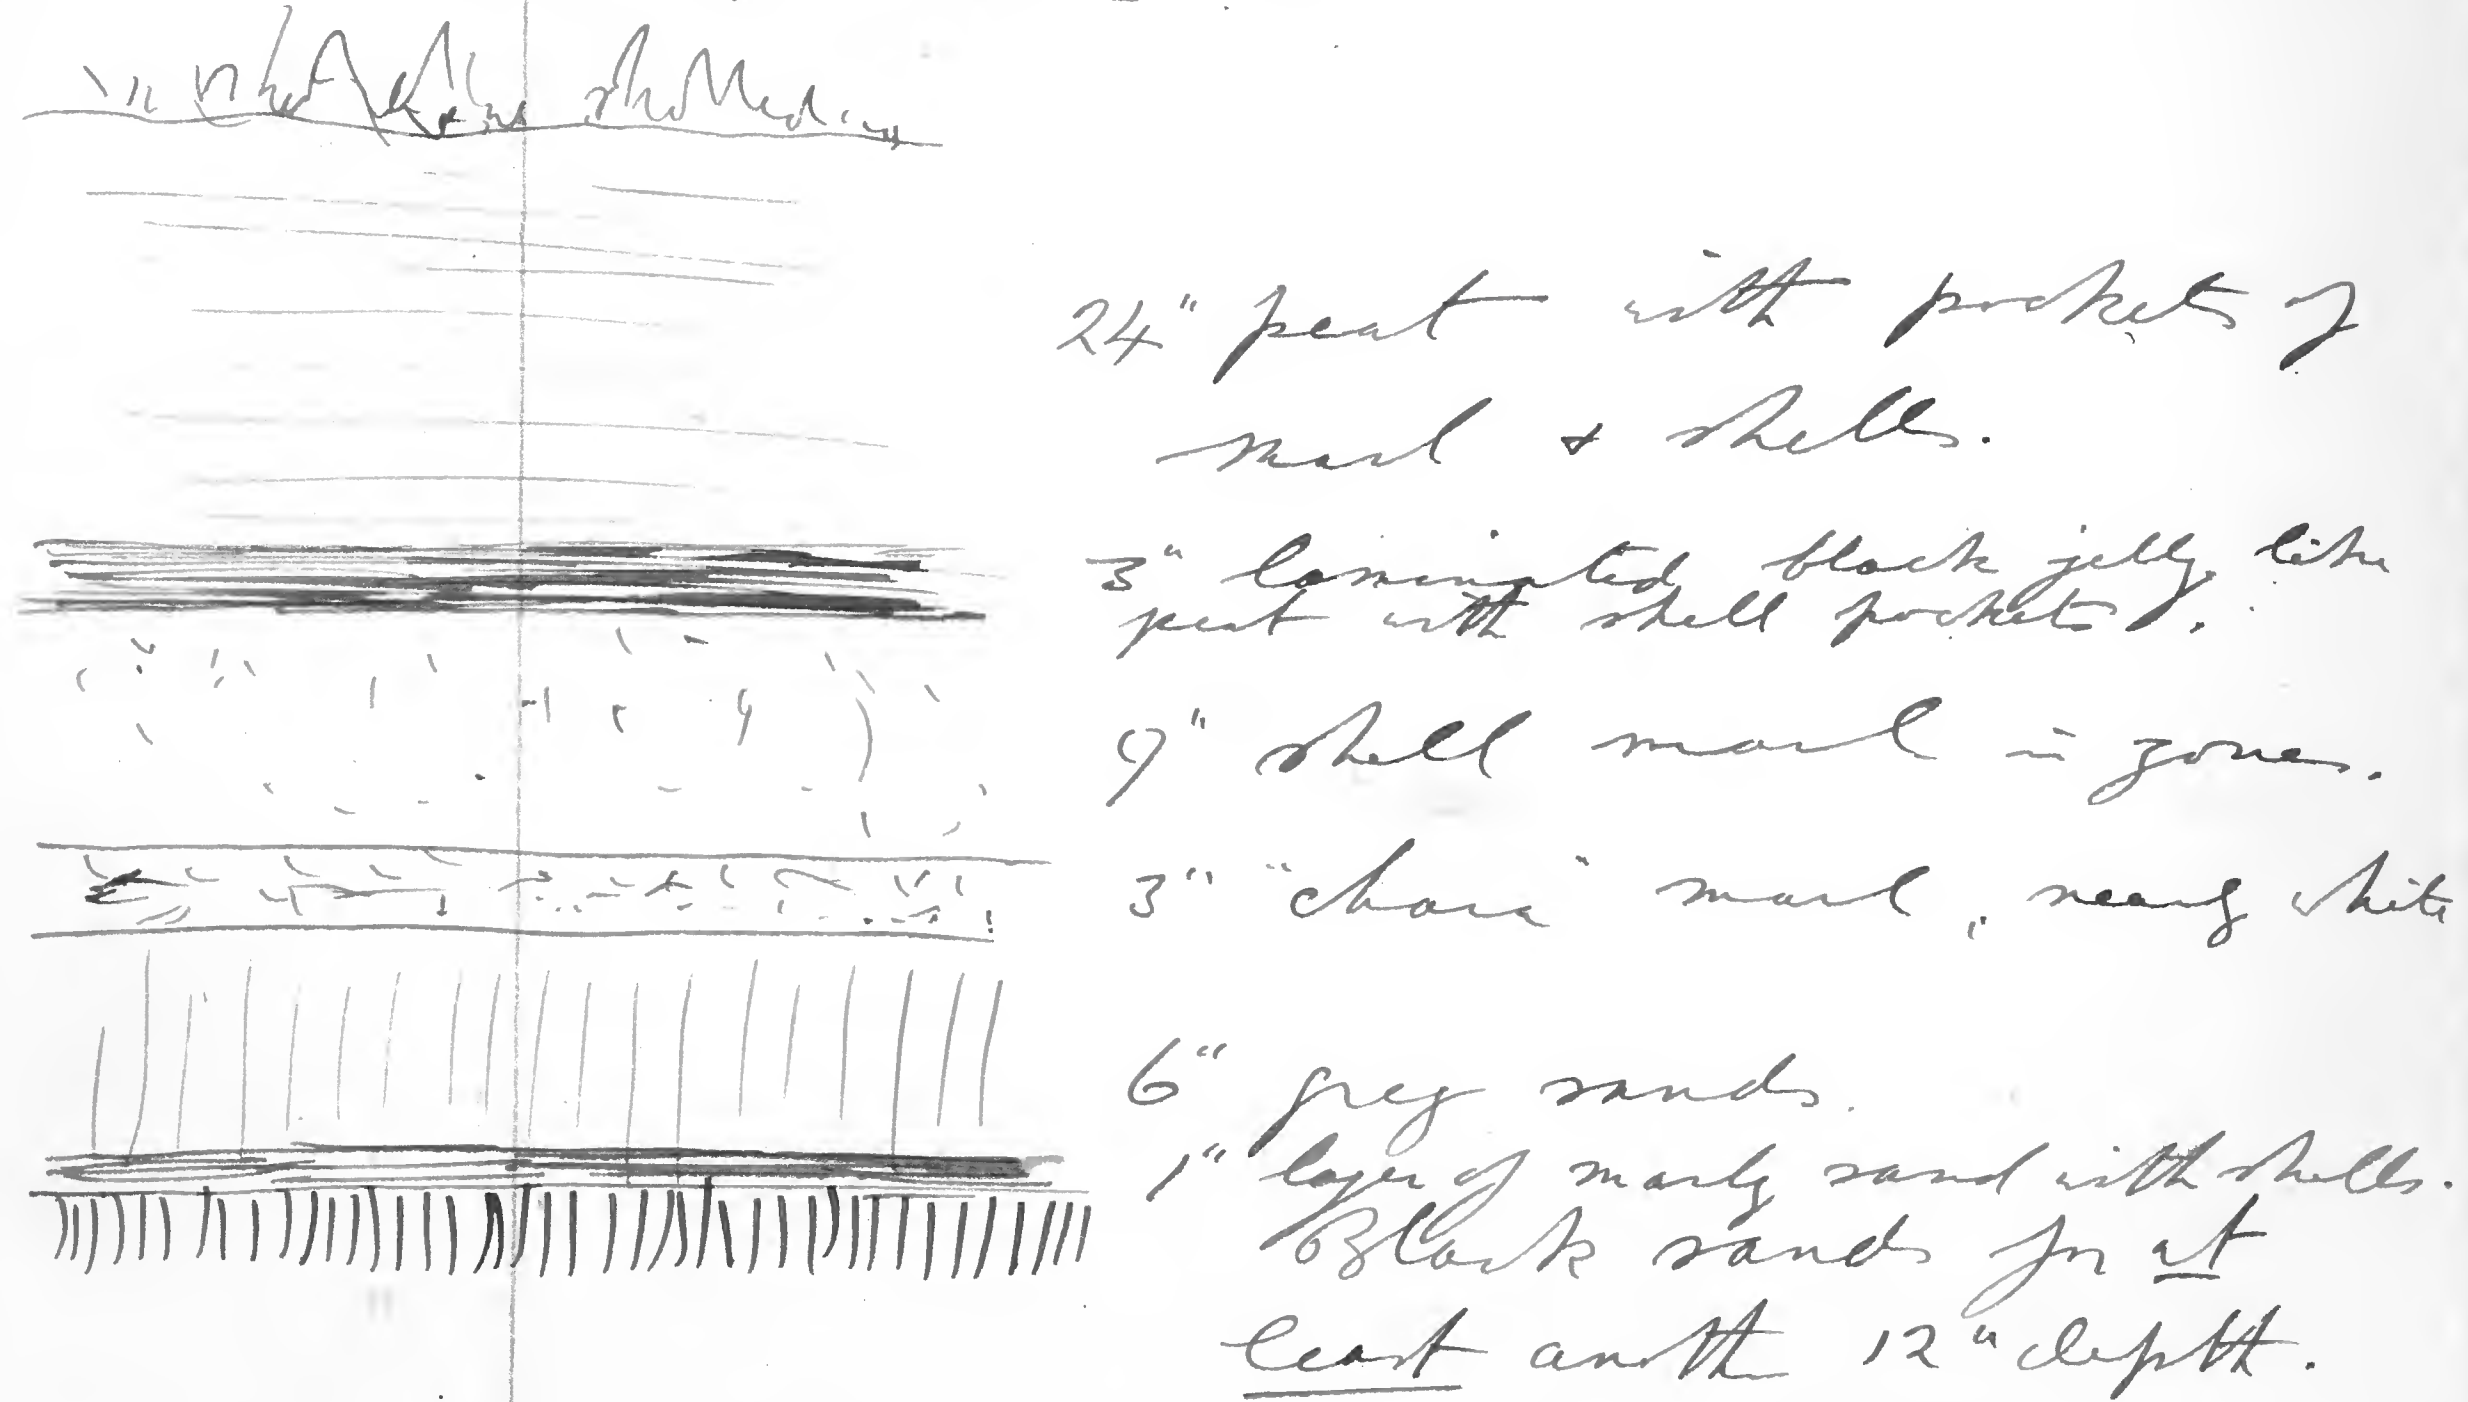 24" peat with pockets of
marl & shells.
3" laminated black jelly like
peat with shell pockets.
9" shell marl in zones.
3" "chara" marl, nearly white
6" grey sands.
1" layer of marly sand with shells.
Black sands for at
least another 12" depth.